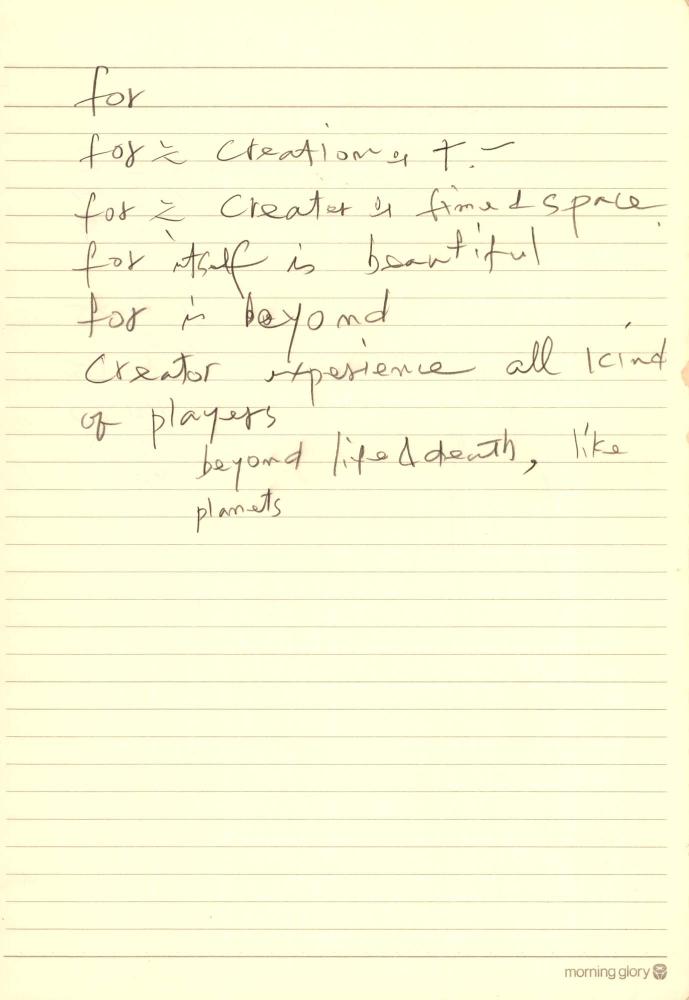 for
for는 Creation의 +, -
for는 Creater의 time & space
for itself is beautiful
for is beyond
Creator experience all kind
of players
beyond life & death, like
planets
morning glory